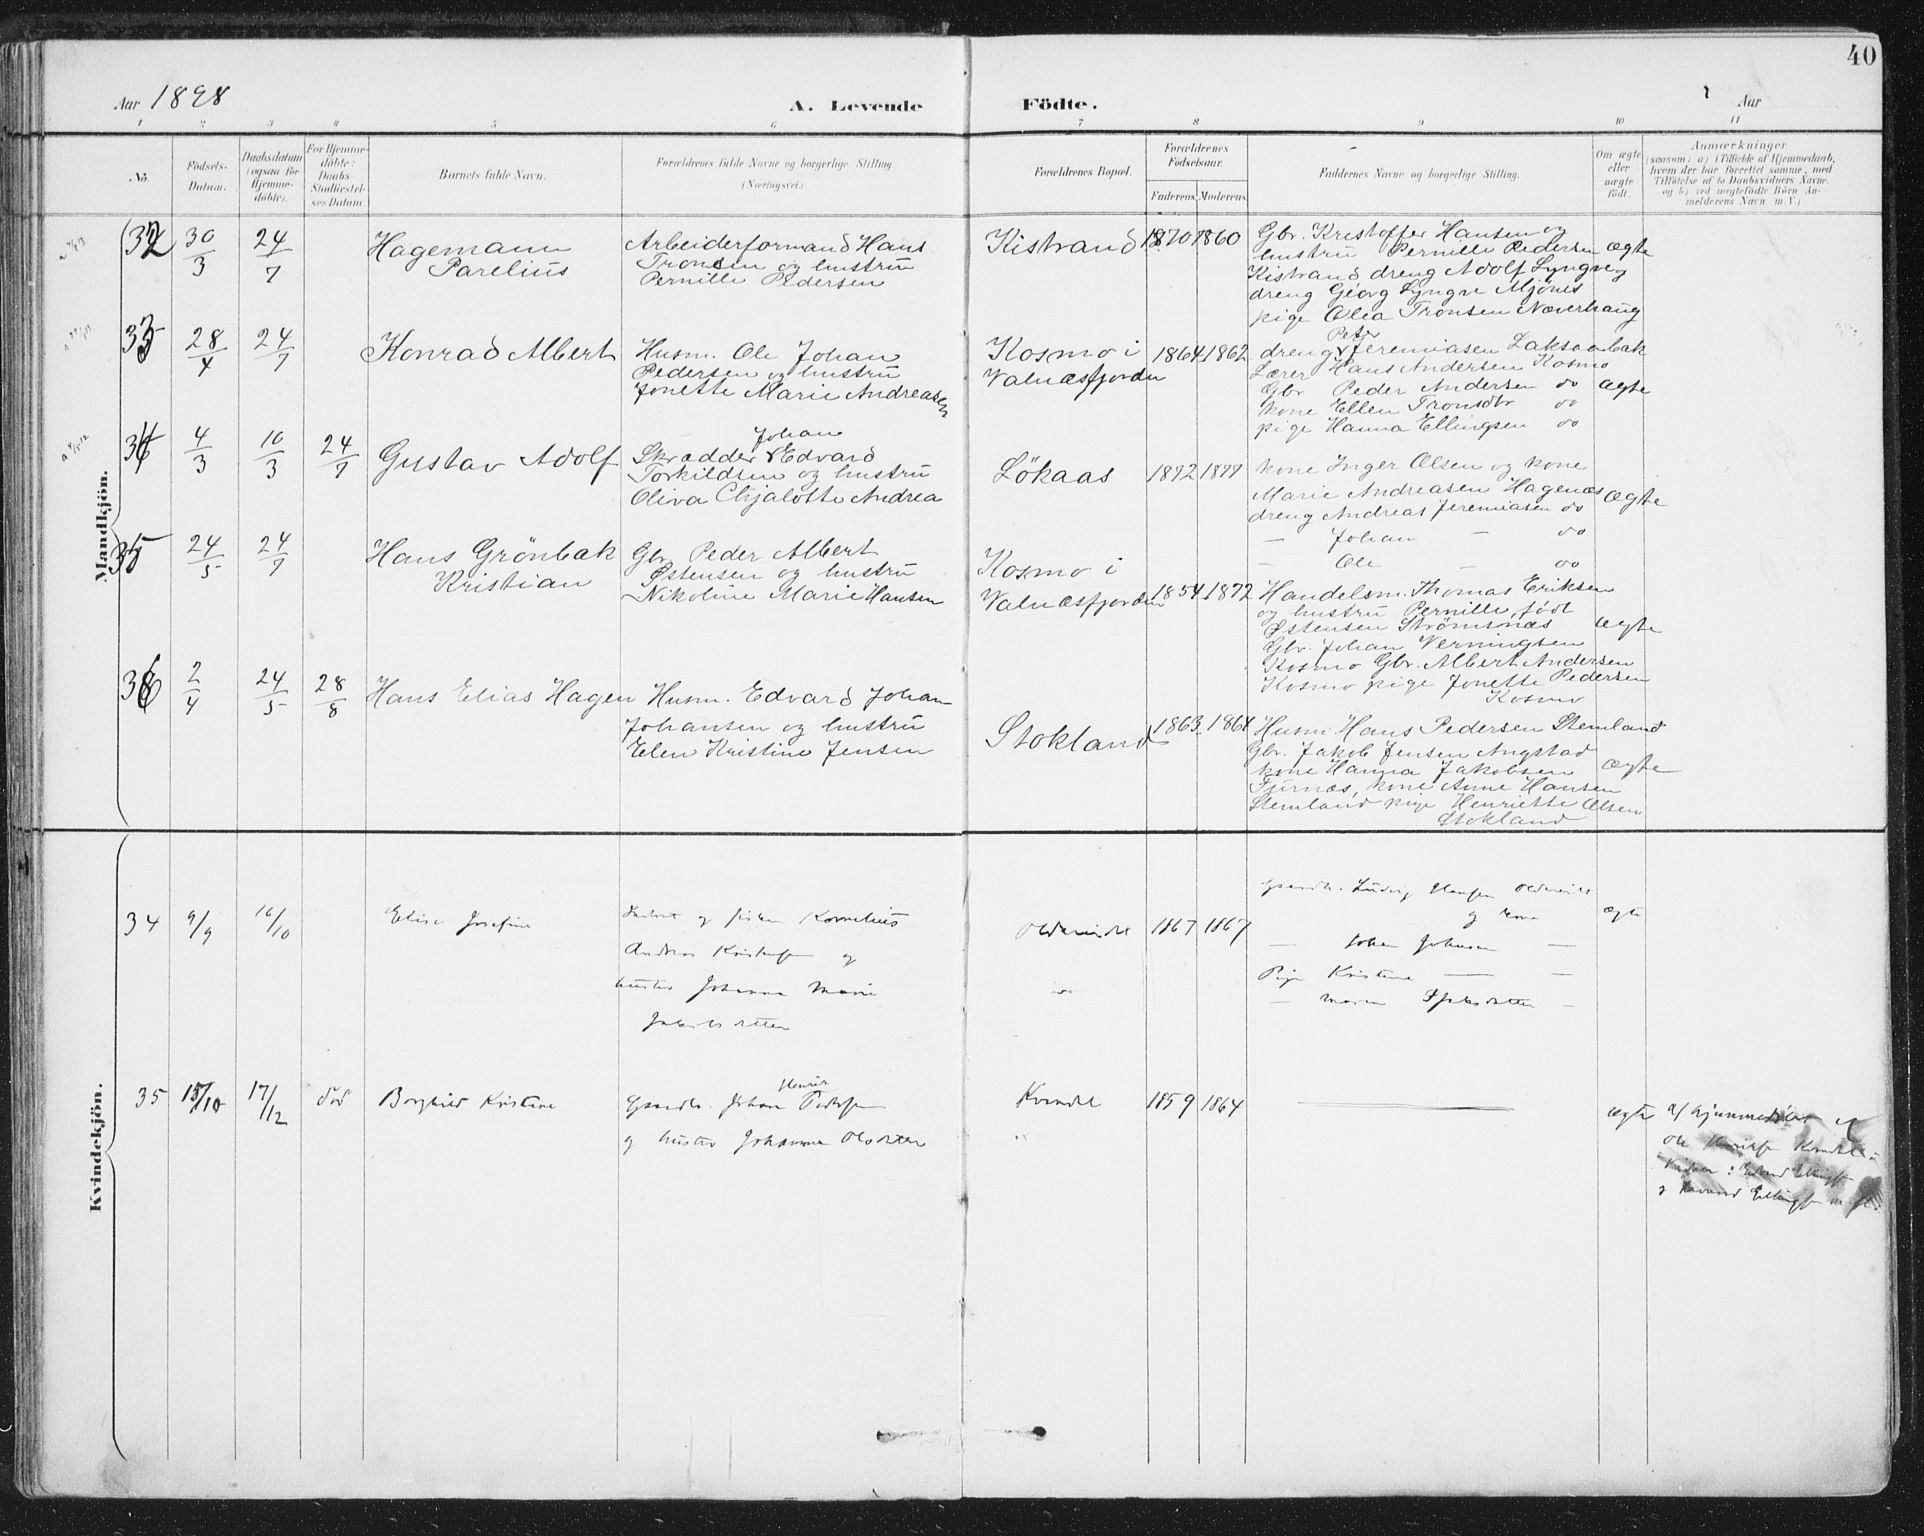 40
Aar 1898
A. Levende
Födte.
Aar
1 2 3 4 5 6 7 8 9 10 11
No.
Födsels-
Datum.
Daabsdatum
(ogsaa for
Hjemme-
döbte).
For Hjemme-
döbte:
Daabs-
Stadfæstel-
ses Datum.
Barnets fulde Navn.
Forældrenes fulde Navne og borgerlige Stilling.
(Næringsvei.)
Forældrenes Bopæl.
Forældrenes
Födselsaar.
Faderens. Moderens.
Faddernes Navne og borgerlige Stilling.
Om ægte
eller
uægte
födt.
Anmærkninger
(saasom: a) i Tilfælde af Hjemmedaab,
hvem der har forrettet samme, med
Tilföielse af to Daabsvidners Navne,
og b) ved uægtefödte Börn An-
melderens Navn m. V.)
Mandkjön.
32
30/3
24/7
Hagemann
Parelius
Arbeiderformand Hans
Tronsen og hustru
Pernille Pedersen
Kistrand
1870 1860
Gbr. Kristoffer Hansen og
hustru Pernille Pedersen
Kistrand dreng Adolf Lyngve og
dreng Georg Lyngve Mjönes
pige Olea Tronsen Naverhaug
ægte
33
28/4
24/7
Konrad Albert
Husm. Ole Johan
Pedersen og hustru
Jonette Marie Andreasen
Kosmo i
Valnæsfjorden
1864 1862
Peter
dreng Jeremiasen Laksaabak
Lærer Hans Andersen Kosmo
Gbr Peder Andersen do
kone Ellen Tronsdtr do
pige Hanna Ellingsen do
ægte
34
4/3
10/3
24/7
Gustav Adolf
Johan
Skrædder Edvard
Torkildsen og hustru
Oliva Chjalotte Andrea
Lökaas
1872 1877
kone Inger Olsen og kone
Marie Andreasen Hagenæs
dreng Andreas Jeremiasen do
— Johan — do
— Ole — do
ægte
35
24/5
24/7
Hans Grönbak
Kristian
Gbr. Peder Albert
Østensen og hustru
Nikoline Marie Hansen
Kosmo i
Valnæsfjorden
1854 1872
Handelsm. Thomas Eriksen
og hustru Pernille, födt
Østensen Strömsnæs
Gbr. Johan Verningsen
Kosmo Gbr. Albert Andersen
Kosmo pige Jonette Pedersen
Kosmo
ægte
36
2/4
24/5
28/8
Hans Elias Hagen
Husm. Edvard Johan
Johansen og hustru
Elen Kristine Jensen
Stokland
1863 1864
Husm. Hans Pedersen Stemland
Gbr. Jakob Jensen Angstad
kone Hanna Jakobsen
Fjurnæs, kone Anne Hansen
Stemland pige Henriette Olsen
Stokland
ægte
Kvindekjön.
34
9/9
16/10
Elise Josefine
og fisker Kornelius
Andreas og
hustru Johanna Marie
1867 1867
Ludvig Hansen
og kone
— Johan Johnsen —
Pige Kristine — —
— Maren —
ægte
35
15/10
17/12
död
Borghild Kristine
Henrik
Gaardbr. Johan Pedersen
og hustru Johanna Olsdatter
Kvændal
1859 1864
ægte
a/ hjemmedöbt af
Ole Kvændal